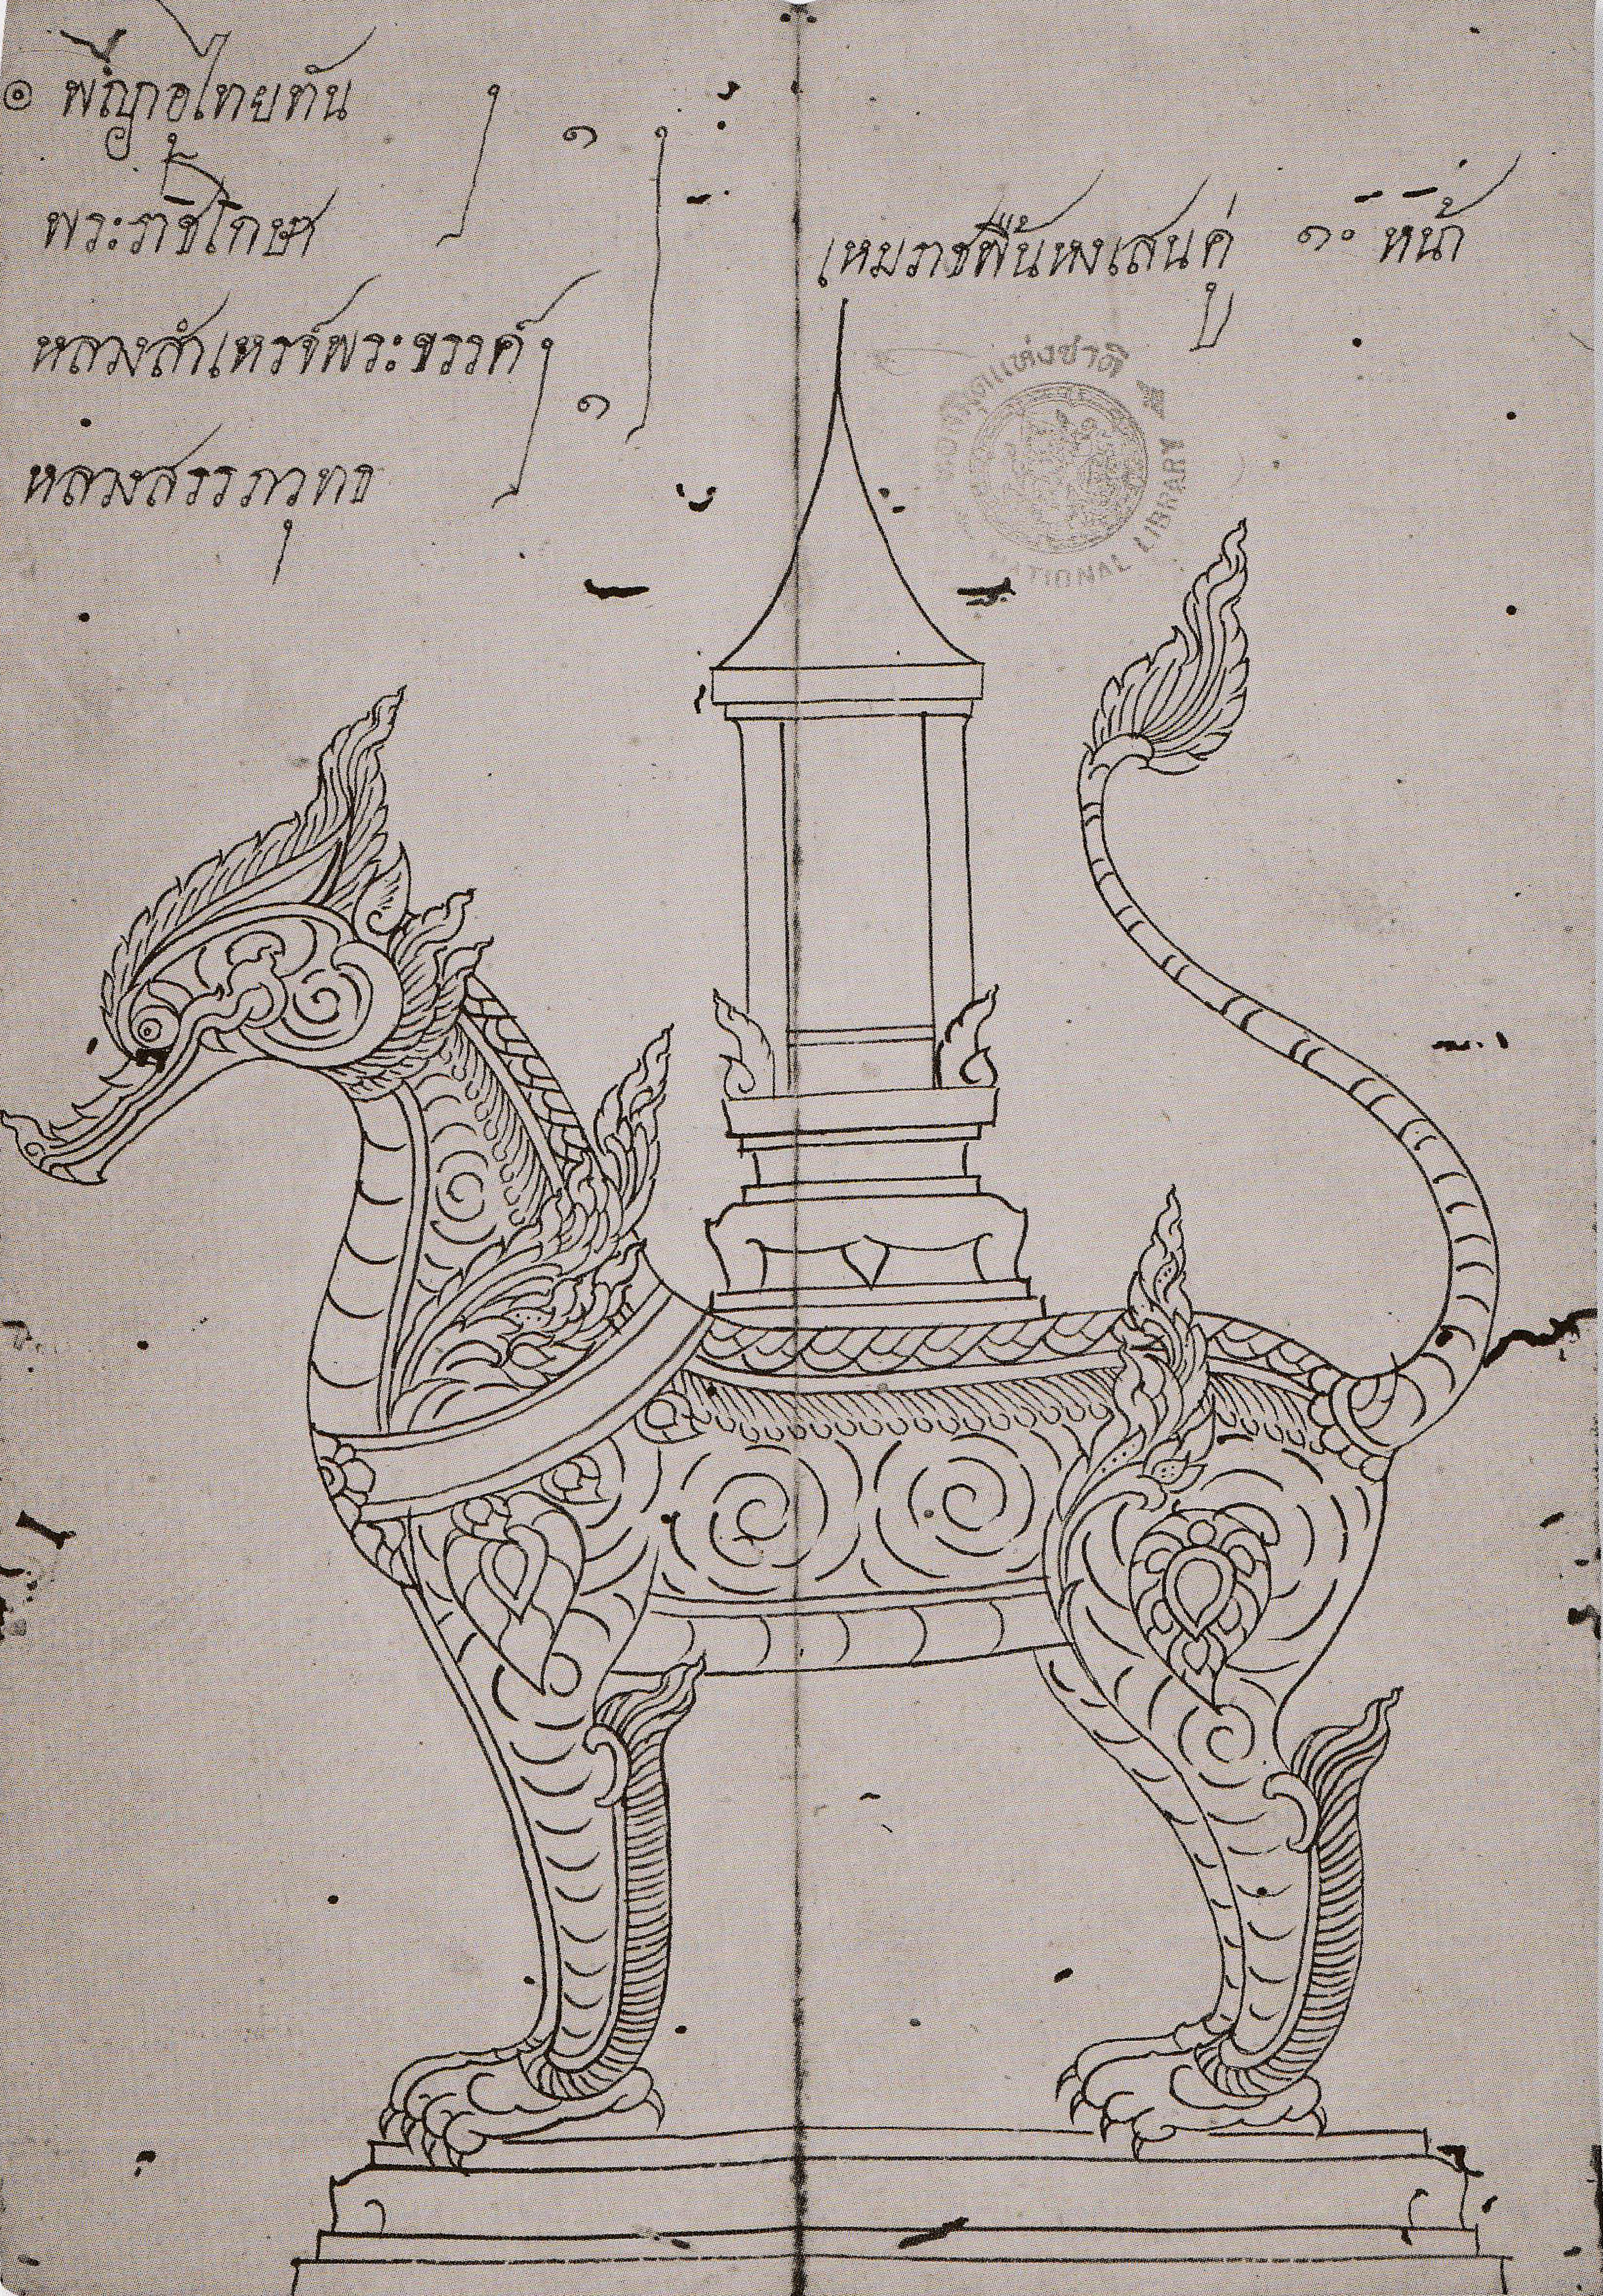 ๏ พญาอุไทยทัน
พระราชโกษา
๑
หลวงสำแทรงพระขรรค์
หลวงสรรภวุทธ
๑
เหมราชพื้นหงเสนคู่ ๑ะ หน้า
หอสมุดแห่งชาติ
NATIONAL LIBRARY